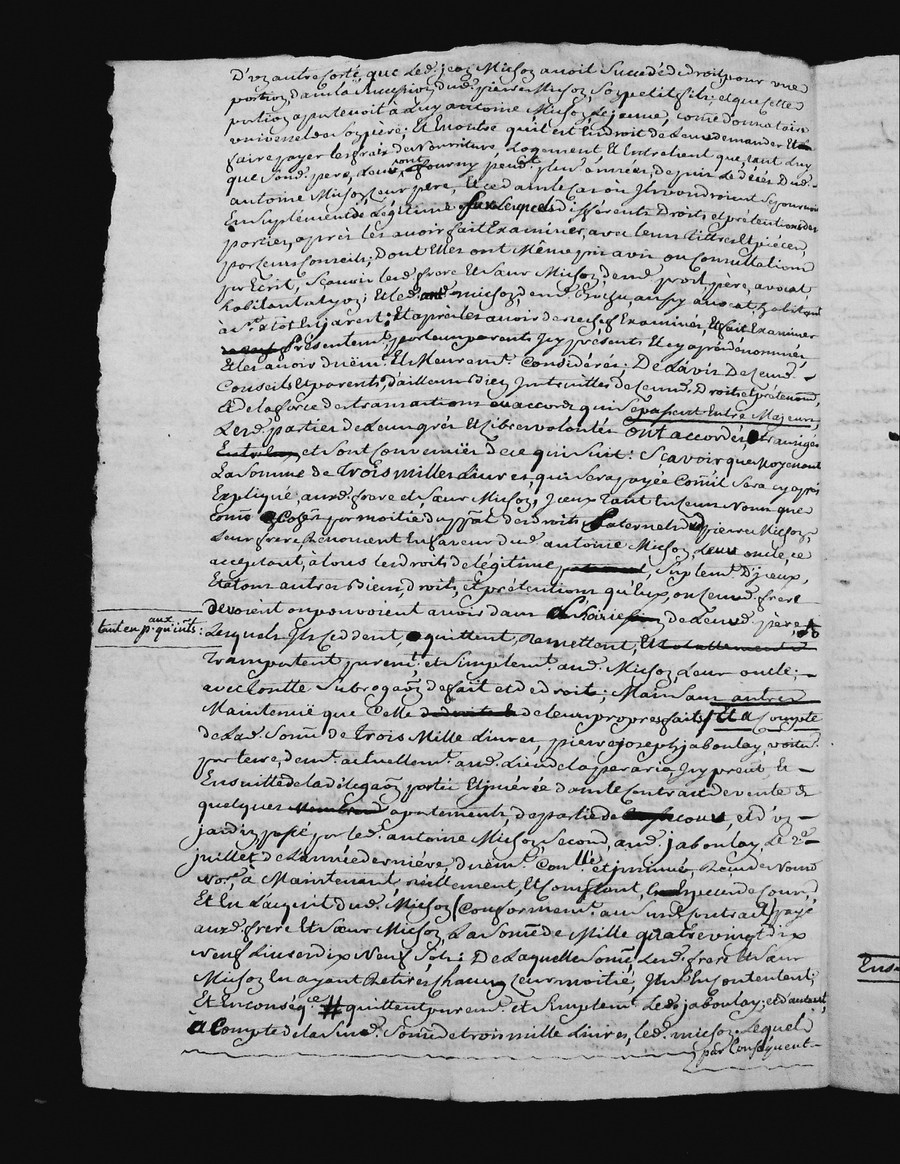 D'vn autre Corté, que Led. jean Michon auoit Succedé de droit pour vne
portion, dans la Succession dud. pierre Michon, Son petit fils; et que Cette
portion appartenoit à Luy antoine Michon, Le jeune, Comme donnataire
vniversel de Son pere; Et En outre qu'il est En droit de Leur demander Et
faire payer les frais de Nourriture, Logement Et Entretient que, tant Luy
que Sond. pere, Leur ont fourny pend.t plus.rs années, depuis Le décès Dud.
antoine Michon, Leur pere, Et ce dans le Cas où Ils voudroient Se pourvoir
En Suplément de Légitime Sur Lesquels Différents Droits et prétentions des
parties, après les auoir fait Examiner, avec leurs tittres Et pièces,
par Leurs Conseils; Dont Elles ont Même pris avis ou Consultation
par Ecrit, Sçauoir Lesd. frere Et Sœur Michon, de m.e père, avocat
habitant à Lyon; Et led. Michon, de m.e avocat, habitant
à Et après les auoir de rechef Examinés, Et fait Examiner
présentement, par Leurs parents Icy présents Et cy après dénommés
Et les auoir duëm.t Et Meurem.t Considérés: De L'avis De Leursd.
Conseils Et parents, d'ailleurs bien Instruittes de Leursd. Droits et prétentions,
Et de la force des transactions ou accords qui Se passent Entre Majeurs,
Lesd. parties de Leur gré Et Libres volontés Ont accordé, transigé
Et Sont Convenuës De ce qui Suit: Sçavoir que Moyenant
La Somme de Trois mille Liures, qui Sera payée Comme il Sera cy après
Expliqué, auxd. frere et Sœur Michon, Iceux tant En Leurs Noms que
comme par moitié des droits Paternels dud. pierre Michon,
Leur frere, Renoncent En faveur dud. antoine Michon, Leur oncle, ce
acceptant, à tous les droits de Légitime, Suplem.t D'yceux,
Et à tous autres Biens, droits, et prétentions qu'Eux, ou Leurd. frere
devoient ou pouvoient auoir dans L'hoirie de Leurd. pere,
tant en p.al qu'aux ints:
Lesquels Ils Cèddent, quittent, Remettent,
Transportent purem.t et Simplem.t aud. Michon Leur oncle;
avec toutte Subrogaôn de fait et de droit; Mais Sans autres
Maintenüe que Celle de Leurs propres faits; Et à Compte
de Lad. Somme de Trois Mille Liures, pierre joseph jaboulay, voitu.r
par terre, dem.t actuellem.t aud. Lieu de la peraria, Icy présent Et
Ensuitte de la délégaôn portée Et jnsérée dans le Contrait de vente de
quelques apartements, de partie de cour, et d'vn
jardin, passé par led. antoine Michon Second, aud. jaboulay, Le 2.e
juillet de L'année dernière, duëm.t Con.llé et jnsinué, Reçu de Nous
Not.e, à Maintenant, réellement, Et Comptant, En Espèces de Cour,
Et En L'acquit dud. Michon (Conformém.t au Susd. Contrait) payé
auxd. frere Et Sœur Michon, La Somme de Mille quatre vingt dix
Neuf Liures dix Neuf Sols: De Laquelle Somme Lesd. frere Et Sœur
Michon En ayant Retiré Chacun Leur moitié, Ils S'En Contentent;
Et En conséq.ce # quittent purem.t et Simplem.t Led. jaboulay; et d'autant
a Compte de la Susd. Somme de trois mille Liures, led. michon Lequel
par Conséquent